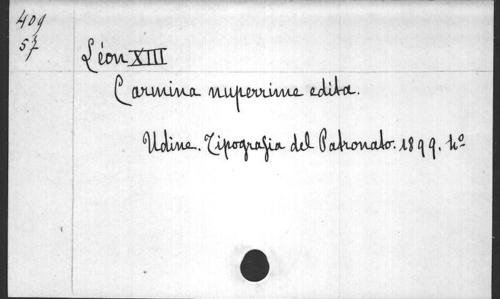 409
57
Léon XIII
Carmina nuperrime edita.
Udine. Tipografia del Patronato. 1899. 4º